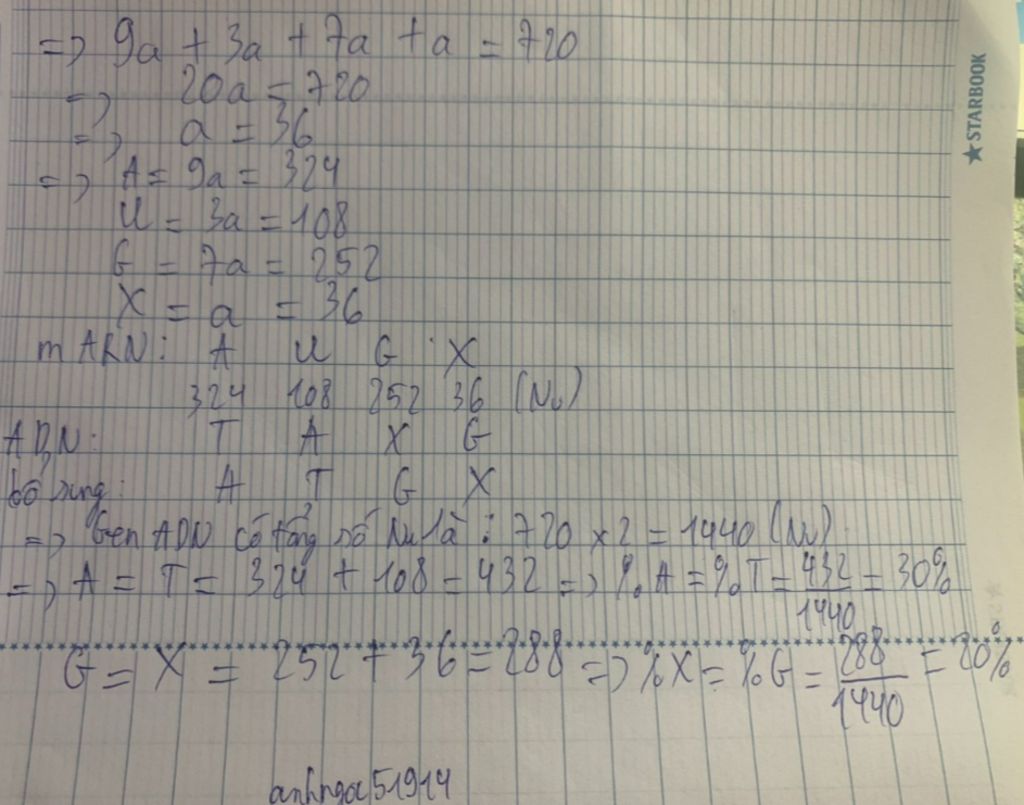 => 9a + 3a + 7a + a = 720
=> 20a = 720
=> a = 36
=> A = 9a = 324
U = 3a = 108
G = 7a = 252
X = a = 36
mARN: A U G X
324 108 252 36 (Nu)
ADN: T A X G
bổ sung: A T G X
=> Gen ADN có tổng số Nu là : 720 x 2 = 1440 (Nu).
=> A = T = 324 + 108 = 432 => %A = %T = 432/1440 = 30%
G = X = 252 + 36 = 288 => %X = %G = 288/1440 = 20%
anhngoc51914
★ STARBOOK